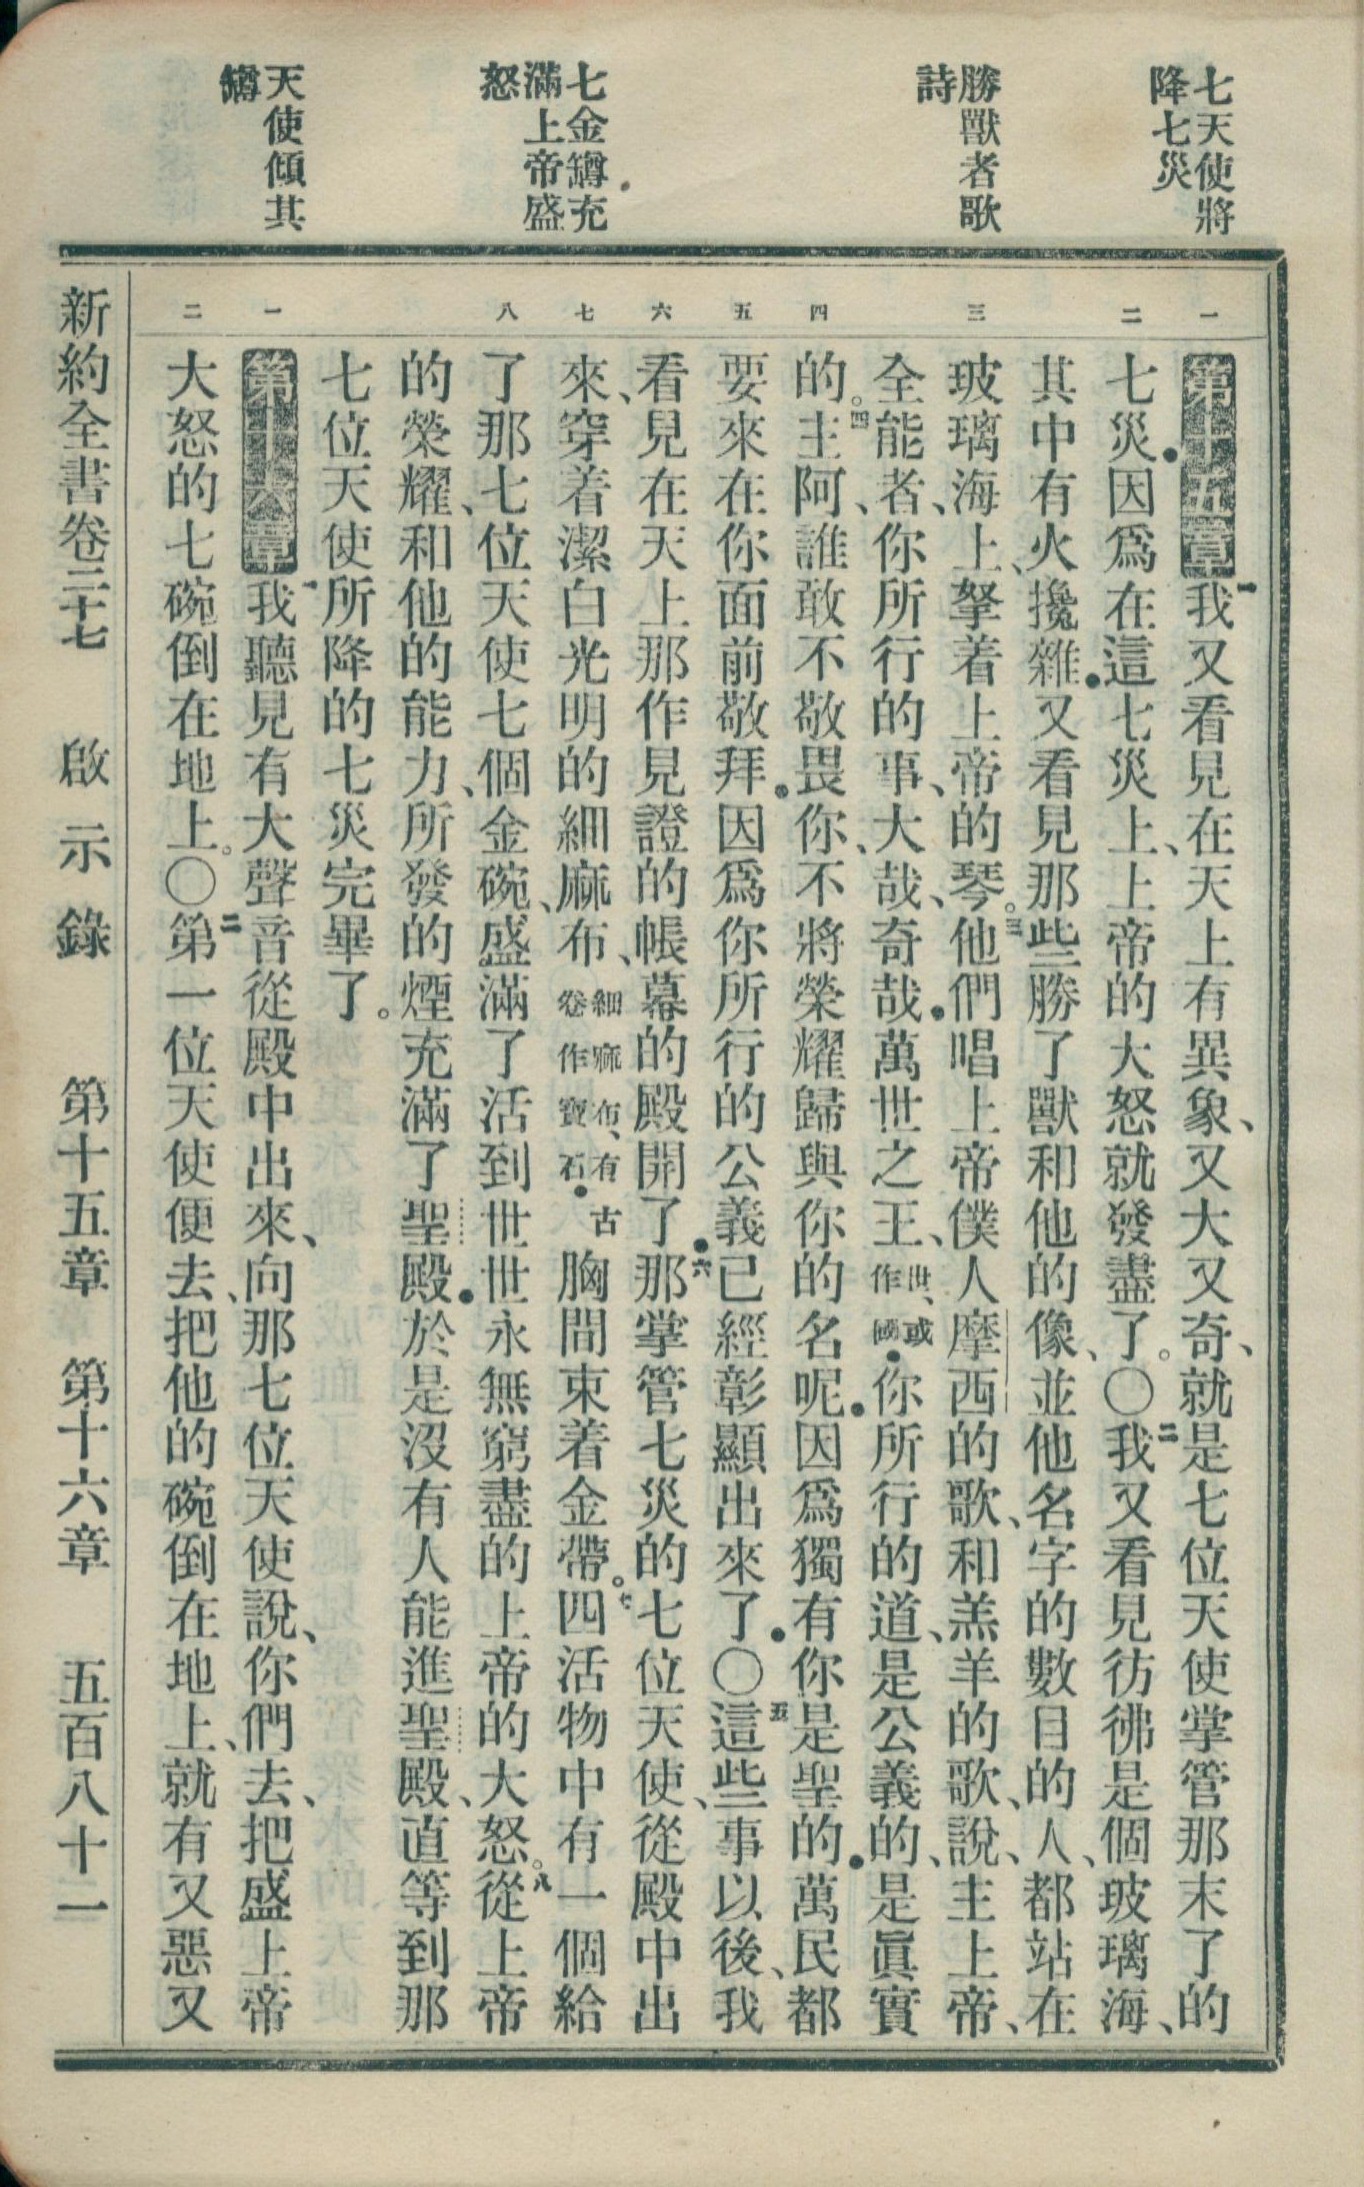 七天使將
降七災
勝獸者歌
詩
七金罇充
滿上帝盛
怒
天使傾其
罇
一
二
三
四
五
六
七
八
一
二
第十五章一我又看見在天上有異象、又大又奇、就是七位天使掌管那末了的
七災●因爲在這七災上、上帝的大怒就發盡了。○二我又看見彷彿是個玻璃海、
其中有火攙雜●又看見那些勝了獸和他的像、並他名字的數目的人、都站在
玻璃海上、拏着上帝的琴。三他們唱上帝僕人摩西的歌、和羔羊的歌、說、主上帝、
全能者、你所行的事、大哉、奇哉●萬世之王、世、或作國●你所行的道、是公義的、是眞實
的。四主阿、誰敢不敬畏你、不將榮耀歸與你的名呢●因爲獨有你是聖的●萬民都
要來在你面前敬拜●因爲你所行的公義已經彰顯出來了●○五這些事以後、我
看見在天上那作見證的帳幕的殿開了●六那掌管七災的七位天使、從殿中出
來、穿着潔白光明的細麻布、細麻布、有古卷作寶石●胸間束着金帶。七四活物中有一個給
了那七位天使七個金碗、盛滿了活到世世永無窮盡的上帝的大怒。八從上帝
的榮耀、和他的能力、所發的煙充滿了聖殿●於是沒有人能進聖殿、直等到那
七位天使所降的七災完畢了。
第十六章一我聽見有大聲音從殿中出來、向那七位天使說、你們去、把盛上帝
大怒的七碗倒在地上。○二第一位天使便去、把他的碗倒在地上、就有又惡又
新約全書卷二十七　啟示錄　第十五章　第十六章　五百八十二